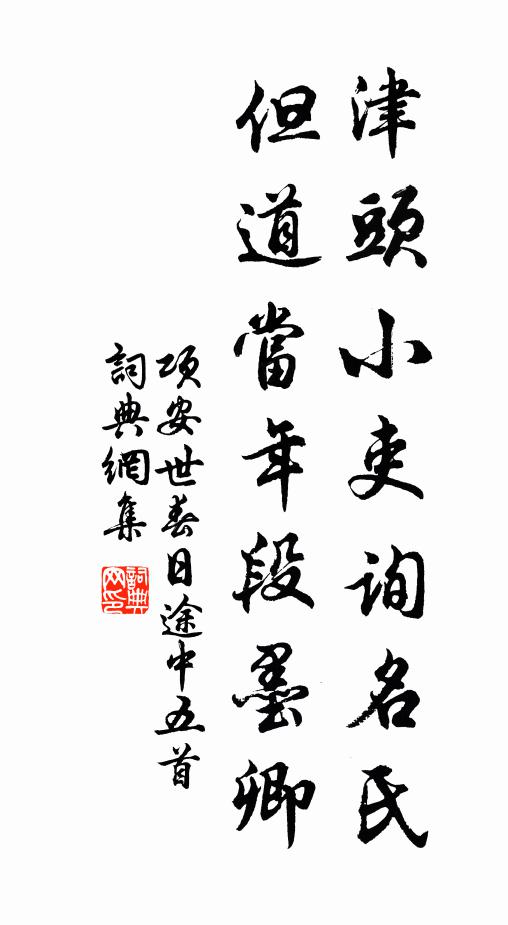 津頭小吏詢名氏
但道當年段墨卿
項安世春日途中五首
詞典網集
詞典網印